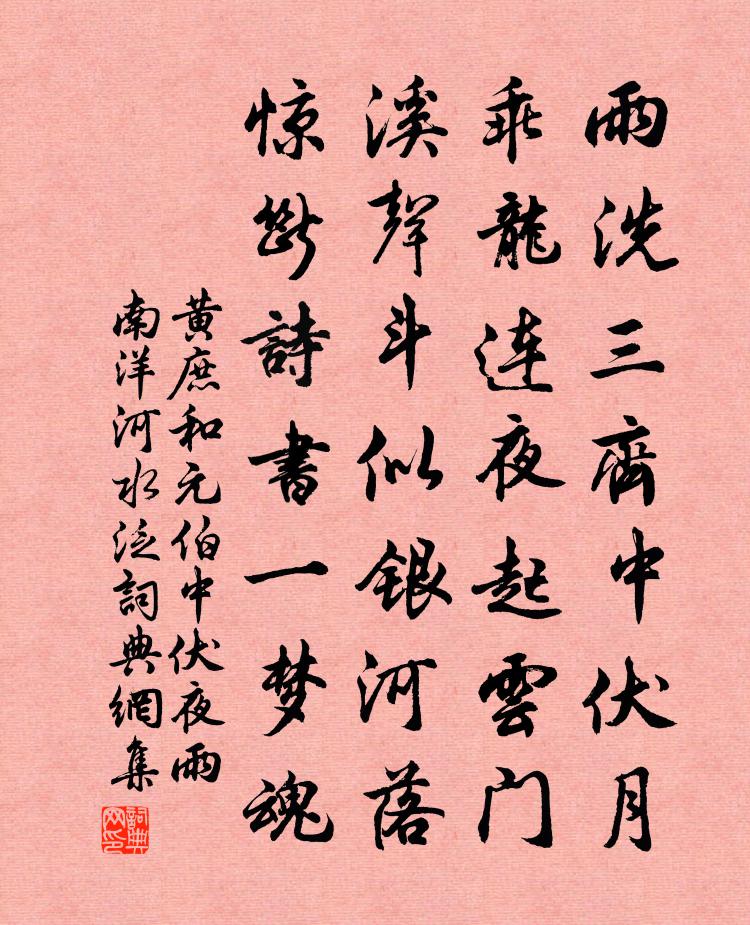 雨洗三齊中伏月
乖龍连夜起雲门
溪聲斗似银河落
惊断詩書一梦魂
黄庶和元伯中伏夜雨
南洋河水泛詞典網集
詞典
网印